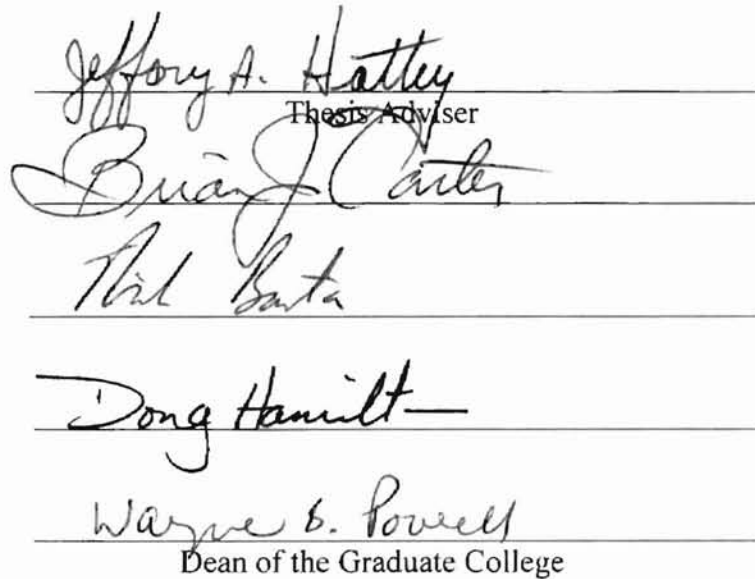 Jeffory A. Hattey
Thesis Adviser
Brian J Carter
Doug Hamilt
Wayne B. Powell
Dean of the Graduate College